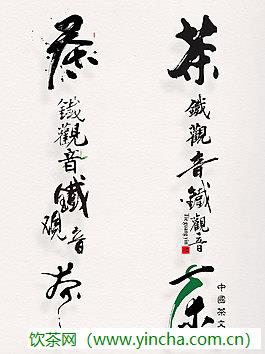 茶
鐵觀音
鐵觀音
茶
茶
鐵觀音
鐵觀音
Tie guan yin
茶
中國茶文
饮茶网（www.yincha.com.cn）